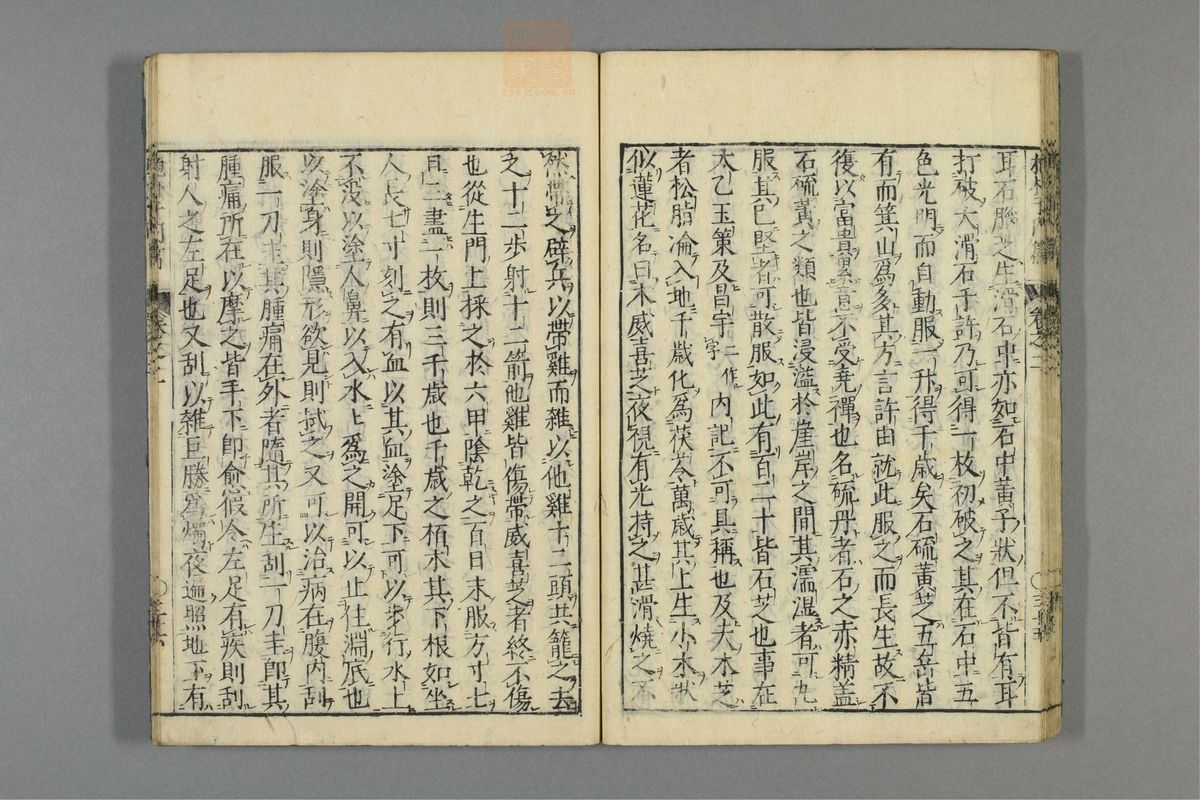 耳石腦芝生滑石中亦如石中黃子狀但不皆有耳
打破大滑石千許乃可得一枚初破之其在石中五
色光明而自動服一升得千歲矣石硫黃芝五岳皆
有而箕山爲多其方言許由就此服之而長生故不
復以富貴累意不受堯禪也名硫丹者石之赤精蓋
石硫黃之類也皆浸溢於崖岸之間其濡濕者可丸
服其已堅者可散服如此有百二十皆石芝也事在
太乙玉策及昌宇一作字内記不可具稱也及夫木芝
者松脂淪入地千歲化爲茯苓萬歲其上生小木狀
似蓮花名曰木威喜芝夜視有光持之甚滑燒之不
然帶之辟兵以帶雞而雜以他雞十二頭共籠之去
之十二步射十二箭他雞皆傷帶威喜芝者終不傷
也從生門上採之於六甲陰乾之百日末服方寸匕
日三盡一枚則三千歲也千歲之栢木其下根如坐
人長七寸刻之有血以其血塗足下可以步行水上
不沒以塗人鼻以入水上爲之開可以止住淵底也
以塗身則隱形欲見則拭之又可以治病在腹内刮
服一刀圭其腫痛在外者隨其所生刮一刀圭即其
腫痛所在以摩之皆手下即愈假令左足有疾則刮
射人之左足也又刮以雜巨勝爲燭夜遍照地下有